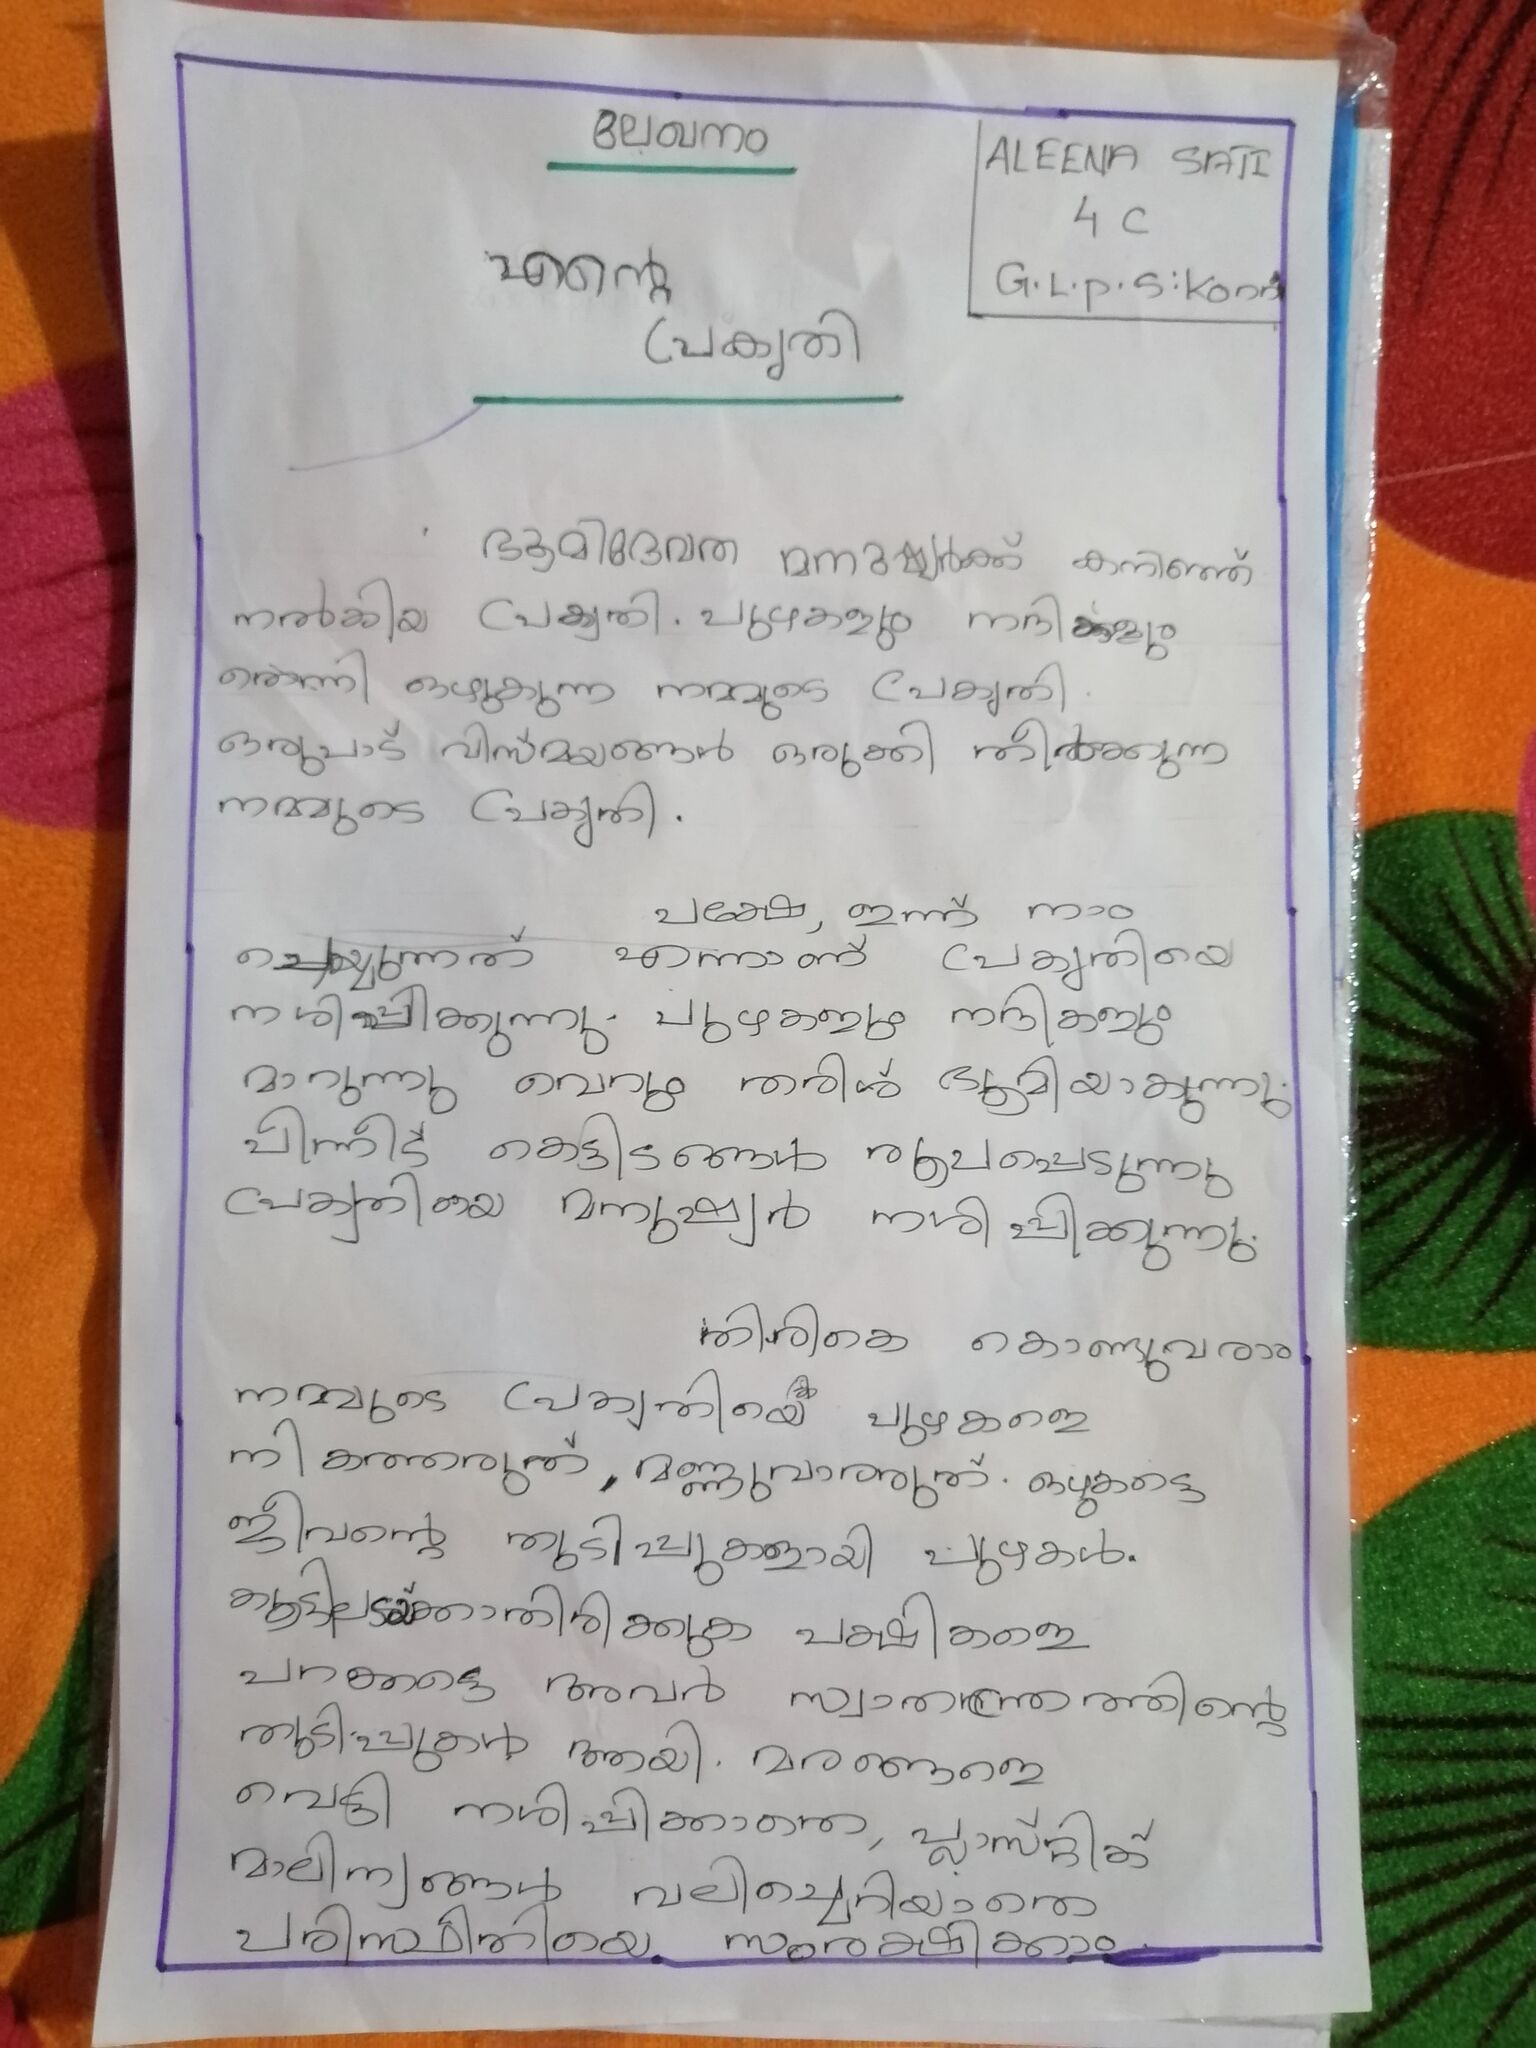 ലേഖനം
ALEENA SATI
4 C
G.L.P.S:Konni
എന്റെ
പ്രകൃതി
ഭൂമിദേവത മനുഷ്യർക്ക് കനിഞ്ഞ്
നൽകിയ പ്രകൃതി. പുഴകളും നദികളും
തെന്നി ഒഴുകുന്ന നമ്മുടെ പ്രകൃതി.
ഒരുപാട് വിസ്മയങ്ങൾ ഒരുക്കി തീർക്കുന്ന
നമ്മുടെ പ്രകൃതി.
പക്ഷേ, ഇന്ന് നാം
ചെയ്യുന്നത് എന്നാണ് പ്രകൃതിയെ
നശിപ്പിക്കുന്നു. പുഴകളും നദികളും
മാറുന്നു വെറും തരിശ് ഭൂമിയാകുന്നു.
പിന്നീട് കെട്ടിടങ്ങൾ രൂപപ്പെടുന്നു
പ്രകൃതിയെ മനുഷ്യൻ നശിപ്പിക്കുന്നു.
തിരികെ കൊണ്ടുവരാം
നമ്മുടെ പ്രകൃതിയെ പുഴകളെ
നികത്തരുത്, മണ്ണുവാരരുത്. ഒഴുകട്ടെ
ജീവന്റെ തുടിപ്പുകളായി പുഴകൾ.
കൂട്ടിലടയ്ക്കാതിരിക്കുക പക്ഷികളെ
പറക്കട്ടെ അവർ സ്വാതന്ത്രത്തിന്റെ
തുടിപ്പുകൾ ആയി. മരങ്ങളെ
വെട്ടി നശിപ്പിക്കാതെ, പ്ലാസ്റ്റിക്
മാലിന്യങ്ങൾ വലിച്ചെറിയാതെ
പരിസ്ഥിതിയെ സംരക്ഷിക്കാം.